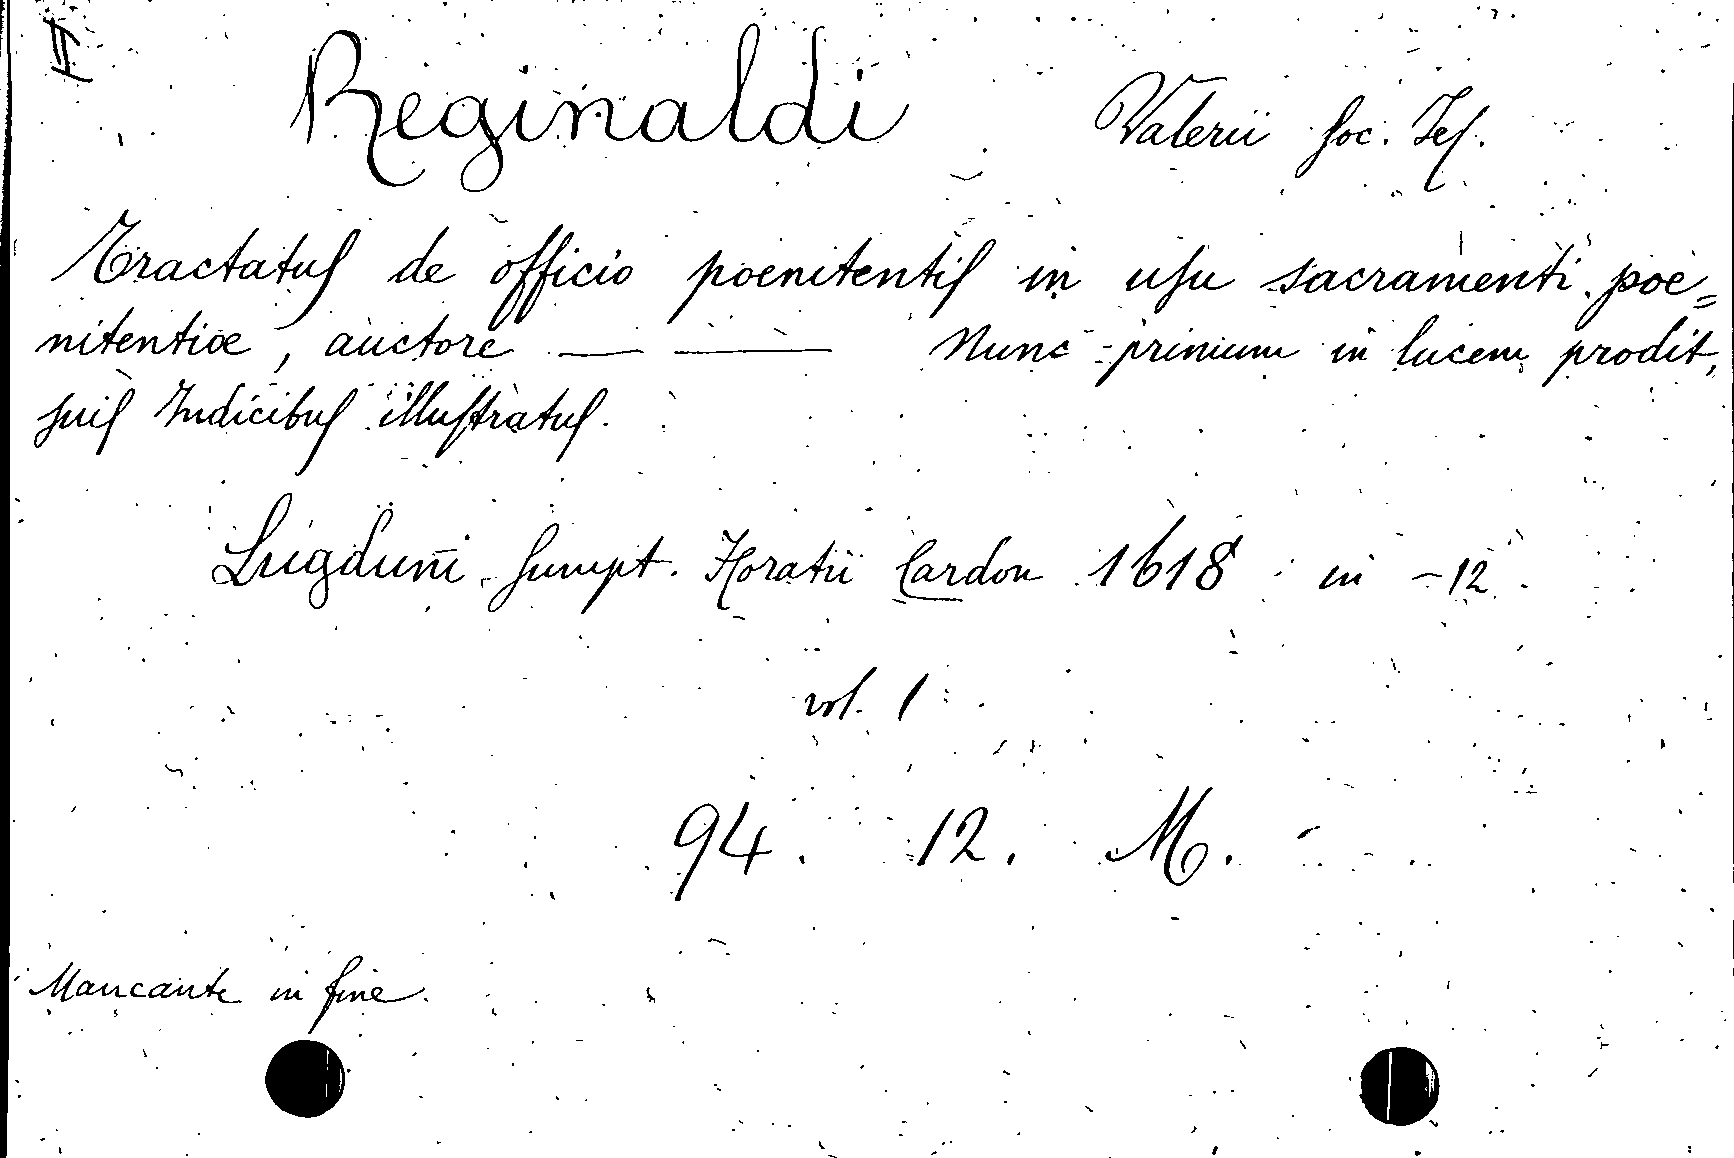 II
Reginaldi Valerii Soc. Jes.
Tractatus de officio poenitentis in usu sacramenti poe=
nitentiae, auctore — — Nunc primum in lucem prodit,
suis Indicibus illustratus.
Lugduni sumpt. Horatii Cardon 1618 in -12
vol. 1
94. 12. M.
Mancante in fine.